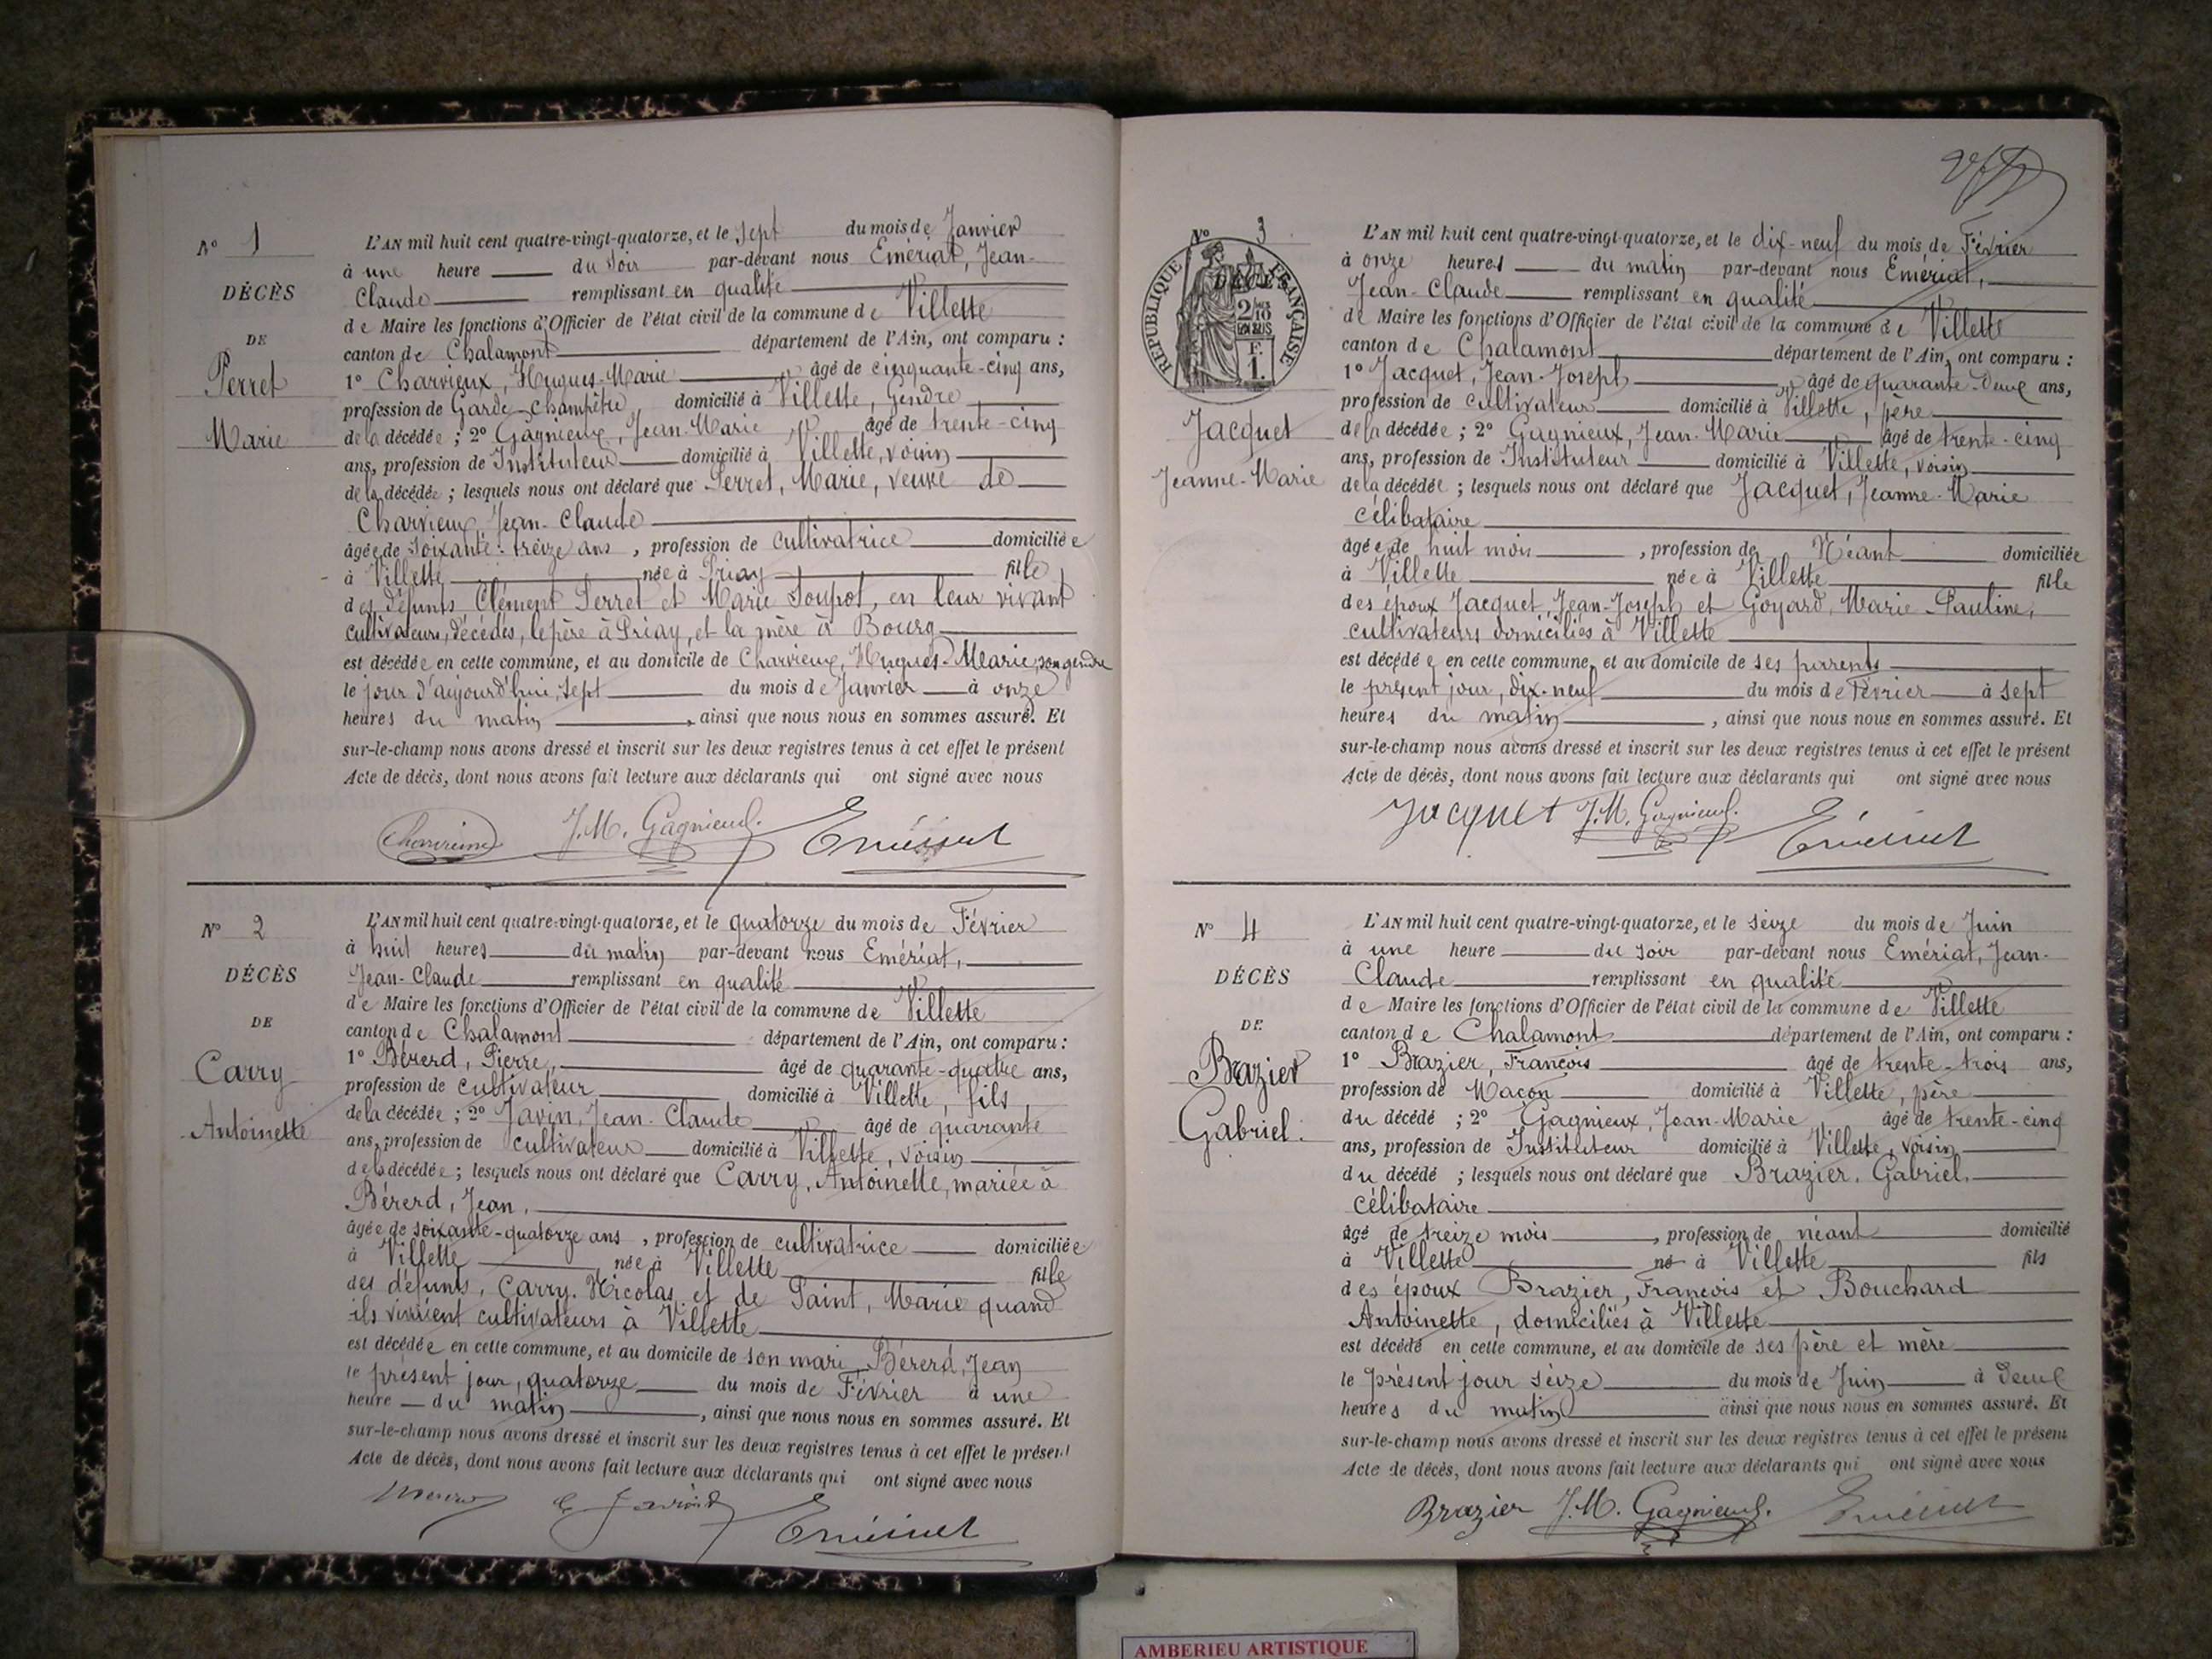 N° 1
DÉCÈS
DE
Perret
Marie
L'AN mil huit cent quatre-vingt-quatorze, et le sept du mois de Janvier
à une heure du soir par-devant nous Emériat, Jean-
Claude remplissant en qualité
de Maire les fonctions d'Officier de l'état civil de la commune de Villette
canton de Chalamont département de l'Ain, ont comparu :
1° Charvieux, Hugues-Marie âgé de cinquante-cinq ans,
profession de Garde-champêtre domicilié à Villette, Gendre
de la décédée ; 2° Gagnieux, Jean-Marie âgé de trente-cinq
ans, profession de Instituteur domicilié à Villette, voisin
de la décédée ; lesquels nous ont déclaré que Perret, Marie, veuve de
Charvieux, Jean-Claude
âgée de soixante-treize ans, profession de cultivatrice domiciliée
à Villette née à Priay fille
des défunts Clément Perret et Marie Poupot, en leur vivant
cultivateurs, décédés, le père à Priay, et la mère à Bourg
est décédée en cette commune, et au domicile de Charvieux, Hugues-Marie, son gendre
le jour d'aujourd'hui, sept du mois de Janvier à onze
heures du matin, ainsi que nous nous en sommes assuré. Et
sur-le-champ nous avons dressé et inscrit sur les deux registres tenus à cet effet le présent
Acte de décès, dont nous avons fait lecture aux déclarants qui ont signé avec nous
Charvieux J.M. Gagnieux. Emériat
N° 2
DÉCÈS
DE
Carry
Antoinette
L'AN mil huit cent quatre-vingt-quatorze, et le quatorze du mois de Février
à huit heures du matin par-devant nous Emériat,
Jean-Claude remplissant en qualité
de Maire les fonctions d'Officier de l'état civil de la commune de Villette
canton de Chalamont département de l'Ain, ont comparu :
1° Bérerd, Pierre, âgé de quarante-quatre ans,
profession de cultivateur domicilié à Villette, fils
de la décédée ; 2° Javin, Jean-Claude âgé de quarante
ans, profession de cultivateur domicilié à Villette, voisin
de la décédée ; lesquels nous ont déclaré que Carry, Antoinette, mariée à
Bérerd, Jean,
âgée de soixante-quatorze ans, profession de cultivatrice domiciliée
à Villette, née à Villette fille
des défunts, Carry, Nicolas et de Paint, Marie quand
ils vivaient cultivateurs à Villette
est décédée en cette commune, et au domicile de son mari, Bérerd, Jean
le présent jour, quatorze du mois de Février à une
heure du matin, ainsi que nous nous en sommes assuré. Et
sur-le-champ nous avons dressé et inscrit sur les deux registres tenus à cet effet le présent
Acte de décès, dont nous avons fait lecture aux déclarants qui ont signé avec nous
Emériat
N° 3
DÉCÈS
RÉPUBLIQUE FRANÇAISE
2/10 EN SUS
F.
1.
Jacquet
Jeanne-Marie
L'AN mil huit cent quatre-vingt-quatorze, et le dix-neuf du mois de Février
à onze heures du matin par-devant nous Emériat,
Jean-Claude remplissant en qualité
de Maire les fonctions d'Officier de l'état civil de la commune de Villette
canton de Chalamont département de l'Ain, ont comparu :
1° Jacquet, Jean-Joseph âgé de quarante-deux ans,
profession de cultivateur domicilié à Villette, père
de la décédée ; 2° Gagnieux, Jean-Marie âgé de trente-cinq
ans, profession de Instituteur domicilié à Villette, voisin
de la décédée ; lesquels nous ont déclaré que Jacquet, Jeanne-Marie
célibataire
âgée de huit mois, profession de Néant domiciliée
à Villette née à Villette fille
des époux Jacquet, Jean-Joseph et Goyard, Marie-Pauline,
cultivateurs domiciliés à Villette
est décédée en cette commune, et au domicile de ses parrents
le présent jour, dix-neuf du mois de Février à sept
heures du matin, ainsi que nous nous en sommes assuré. Et
sur-le-champ nous avons dressé et inscrit sur les deux registres tenus à cet effet le présent
Acte de décès, dont nous avons fait lecture aux déclarants qui ont signé avec nous
Jacquet J.M. Gagnieux. Emériat
N° 4
DÉCÈS
DE
Brazier
Gabriel.
L'AN mil huit cent quatre-vingt-quatorze, et le seize du mois de Juin
à une heure du soir par-devant nous Emériat, Jean-
Claude remplissant en qualité
de Maire les fonctions d'Officier de l'état civil de la commune de Villette
canton de Chalamont département de l'Ain, ont comparu :
1° Brazier, François âgé de trente-trois ans,
profession de Maçon domicilié à Villette, père
du décédé ; 2° Gagnieux, Jean-Marie, âgé de trente-cinq
ans, profession de Instituteur domicilié à Villette, voisin
du décédé ; lesquels nous ont déclaré que Brazier, Gabriel,
célibataire
âgé de treize mois, profession de néant domicilié
à Villette né à Villette fils
des époux Brazier, François et Bouchard
Antoinette, domiciliés à Villette
est décédé en cette commune, et au domicile de ses père et mère
le présent jour seize du mois de Juin à deux
heures du matin ainsi que nous nous en sommes assuré. Et
sur-le-champ nous avons dressé et inscrit sur les deux registres tenus à cet effet le présent
Acte de décès, dont nous avons fait lecture aux déclarants qui ont signé avec nous
Brazier J.M. Gagnieux. Emériat
AMBERIEU ARTISTIQUE